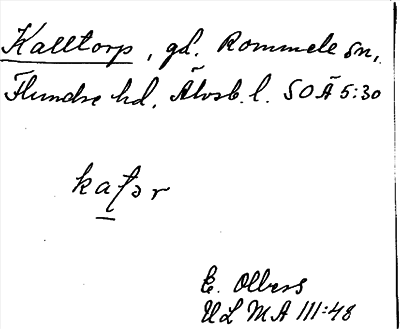 Kalltorp, gd. Rommele sn,
Flundre hd, Älvsb. l. SOÄ 5:30
E. Olbers
ULMA 111:48